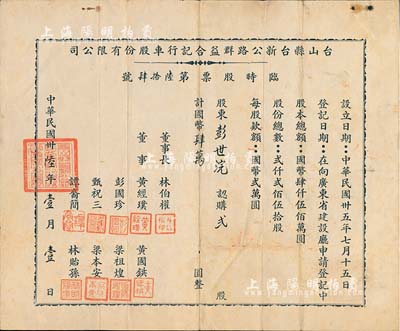 台山縣台新公路群益合記行車股份有限公司
臨時股票第陸拾肆號
設立日期：中華民國卅五年七月十五日
登記日期：在向廣東省建設廳申請登記中
股本總額：國幣肆仟伍佰萬圓
股份總數：弍仟弍佰伍拾股
每股款額：國幣弍萬圓
股東彭世 認購弍股
計國幣肆萬圓整
董事長 林伯權
董事 黃經璞 黃國鉷
彭國珍 梁祖煌
甄祝三 梁本安
譚裔簡 林貽孫
中華民國卅陸年壹月壹日